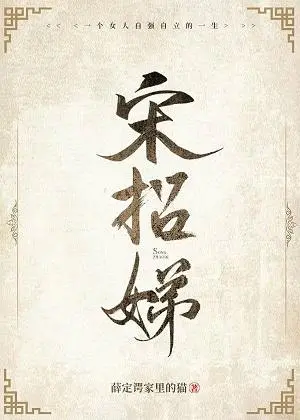 << 一个女人自强自立的一生 >>
宋招娣
SONG
薛定谔家里的猫 著